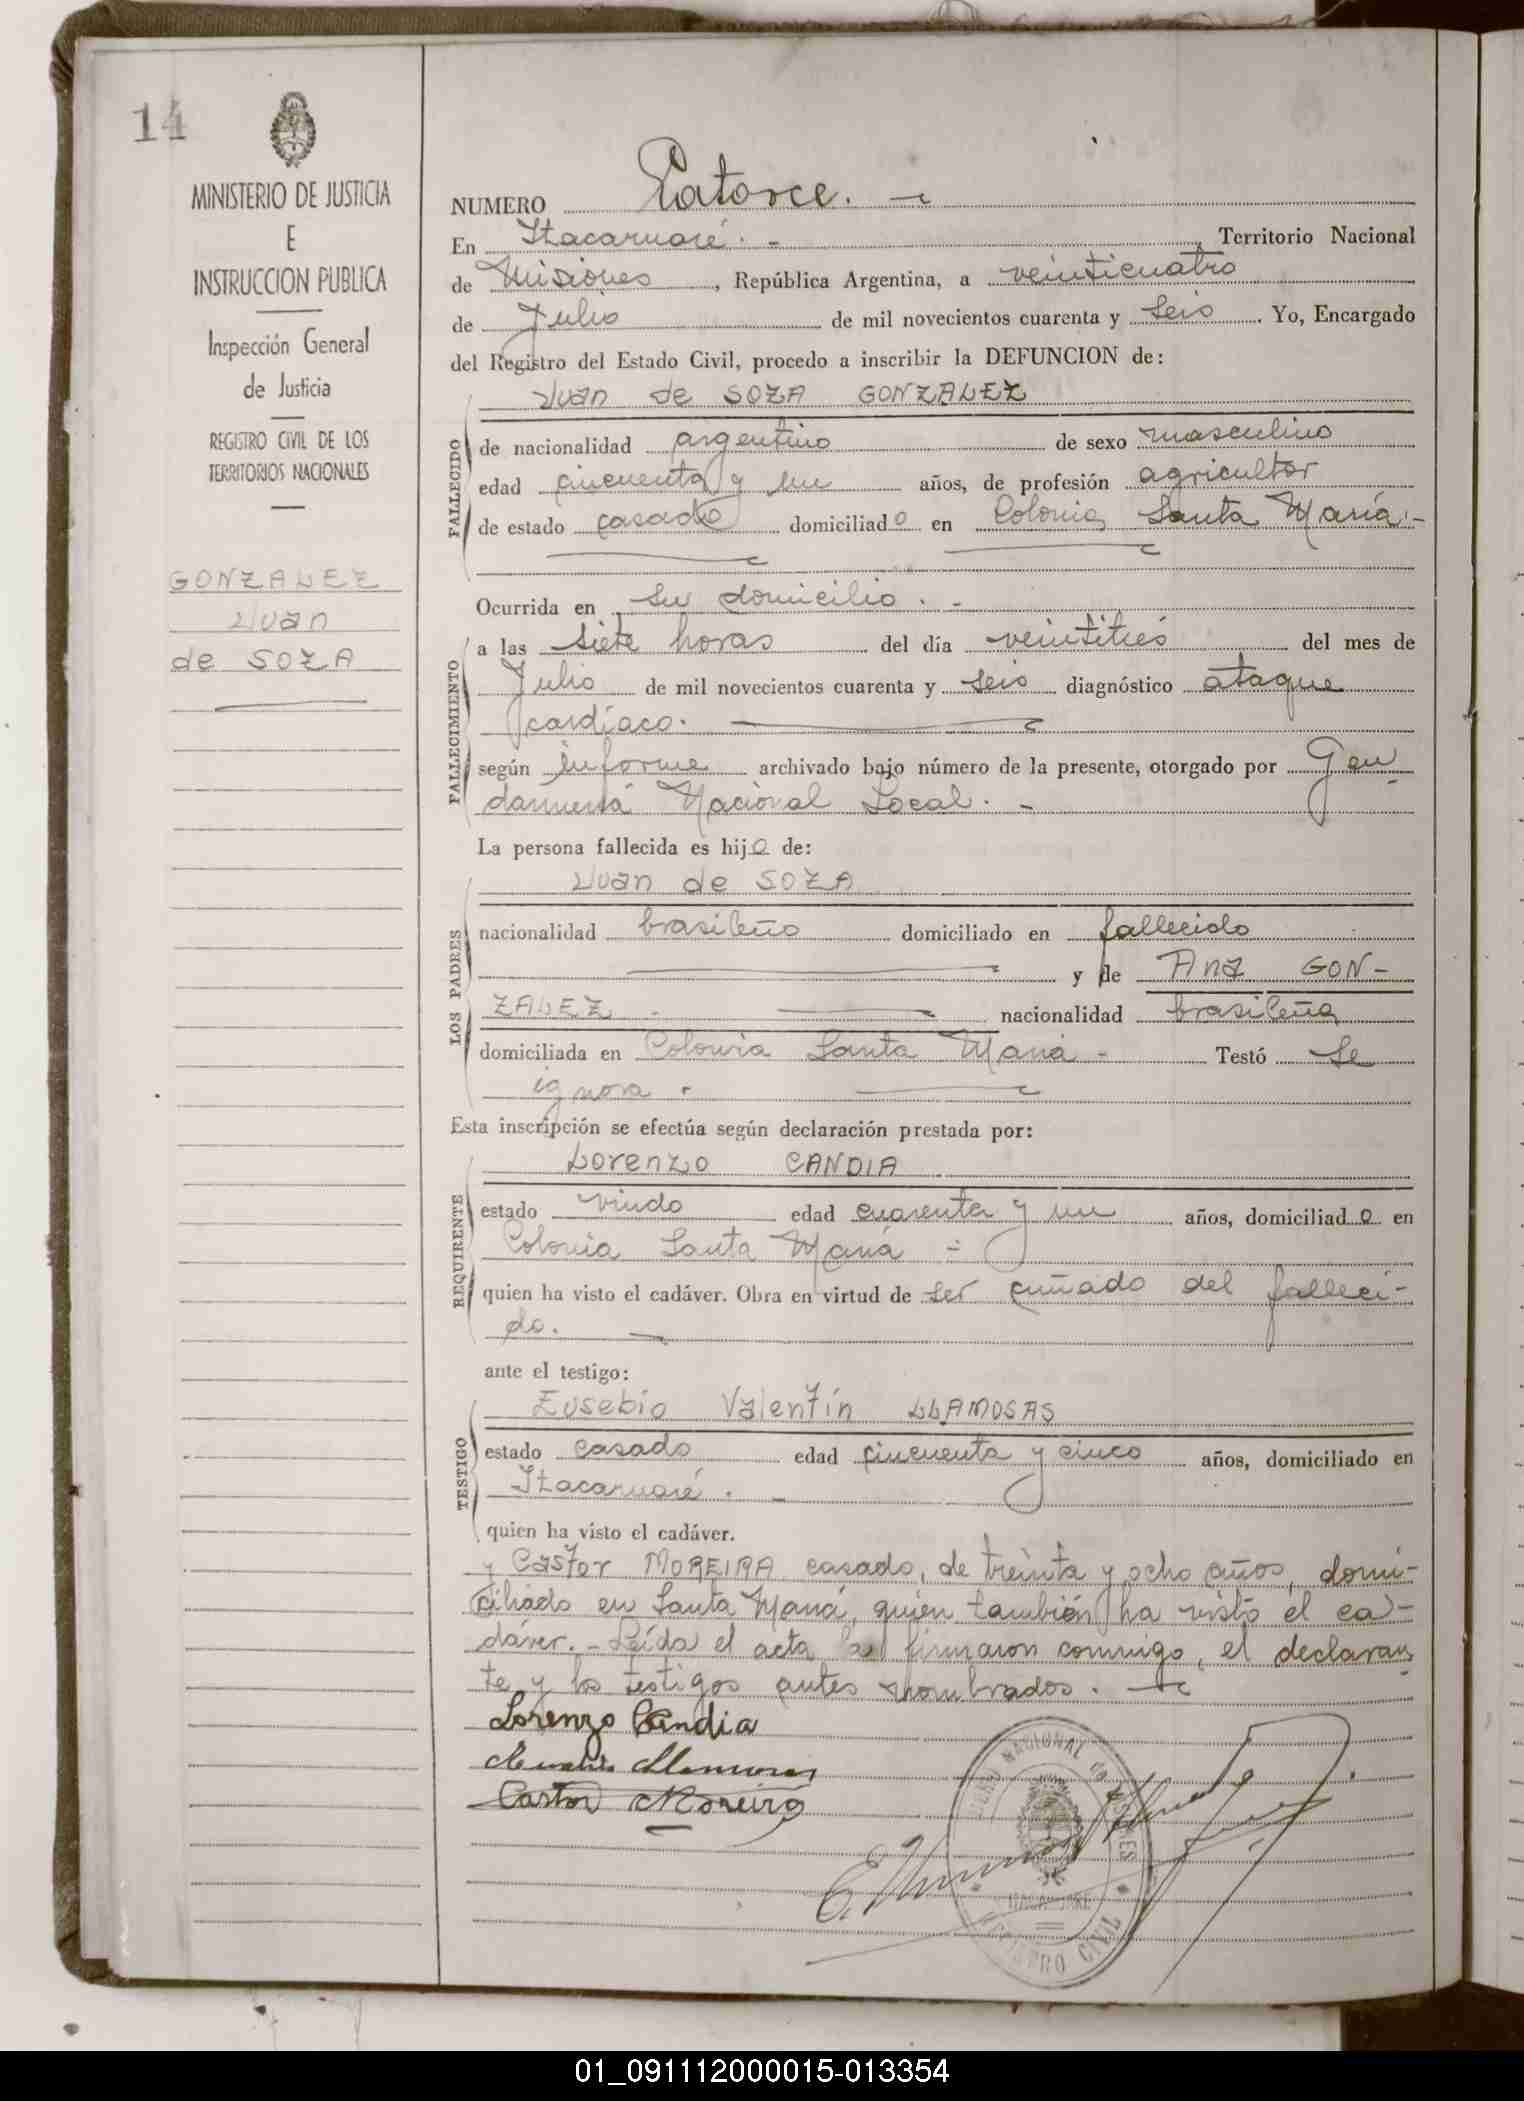 14
MINISTERIO DE JUSTICIA
E
INSTRUCCION PUBLICA
Inspección General
de Justicia
REGISTRO CIVIL DE LOS
TERRITORIOS NACIONALES
GONZALEZ
Juan
de SOZA
NUMERO Catorce.
En Itacaruaré. - , Territorio Nacional
de Misiones , República Argentina, a veinticuatro
de Julio de mil novecientos cuarenta y seis . Yo, Encargado
del Registro del Estado Civil, procedo a inscribir la DEFUNCION de:
Juan de SOZA GONZALEZ
FALLECIDO
de nacionalidad argentino de sexo masculino
edad cincuenta y un años, de profesión agricultor
de estado casado domiciliado en Colonia Santa María.-
Ocurrida en su domicilio. -
FALLECIMIENTO
a las siete horas del día veintitrés del mes de
Julio de mil novecientos cuarenta y seis diagnóstico ataque
cardíaco.
según informe archivado bajo número de la presente, otorgado por Gen-
darmería Nacional Local. -
La persona fallecida es hijo de:
Juan de SOZA
LOS PADRES
nacionalidad brasileño domiciliado en fallecido
y de Ana GON-
ZALEZ nacionalidad brasileña
domiciliada en Colonia Santa María - Testó se
ignora.
Esta inscripción se efectúa según declaración prestada por:
Lorenzo CANDIA
REQUIRENTE
estado viudo edad cuarenta y un años, domiciliado en
Colonia Santa María -
quien ha visto el cadáver. Obra en virtud de ser cuñado del falleci-
do.
ante el testigo:
Eusebio Valentín LLAMOSAS
TESTIGO
estado casado edad cincuenta y cinco años, domiciliado en
Itacaruaré. -
quien ha visto el cadáver.
y Castor MOREIRA casado, de treinta y ocho años, domi-
ciliado en Santa María, quien también ha visto el ca-
dáver.- Leída el acta la firmaron conmigo, el declaran-
te y los testigos antes nombrados.
Lorenzo Candia
Llamosas
Castor Moreira
NACIONAL de MISIONES
ITACARUARE
REGISTRO CIVIL
01_091112000015-013354